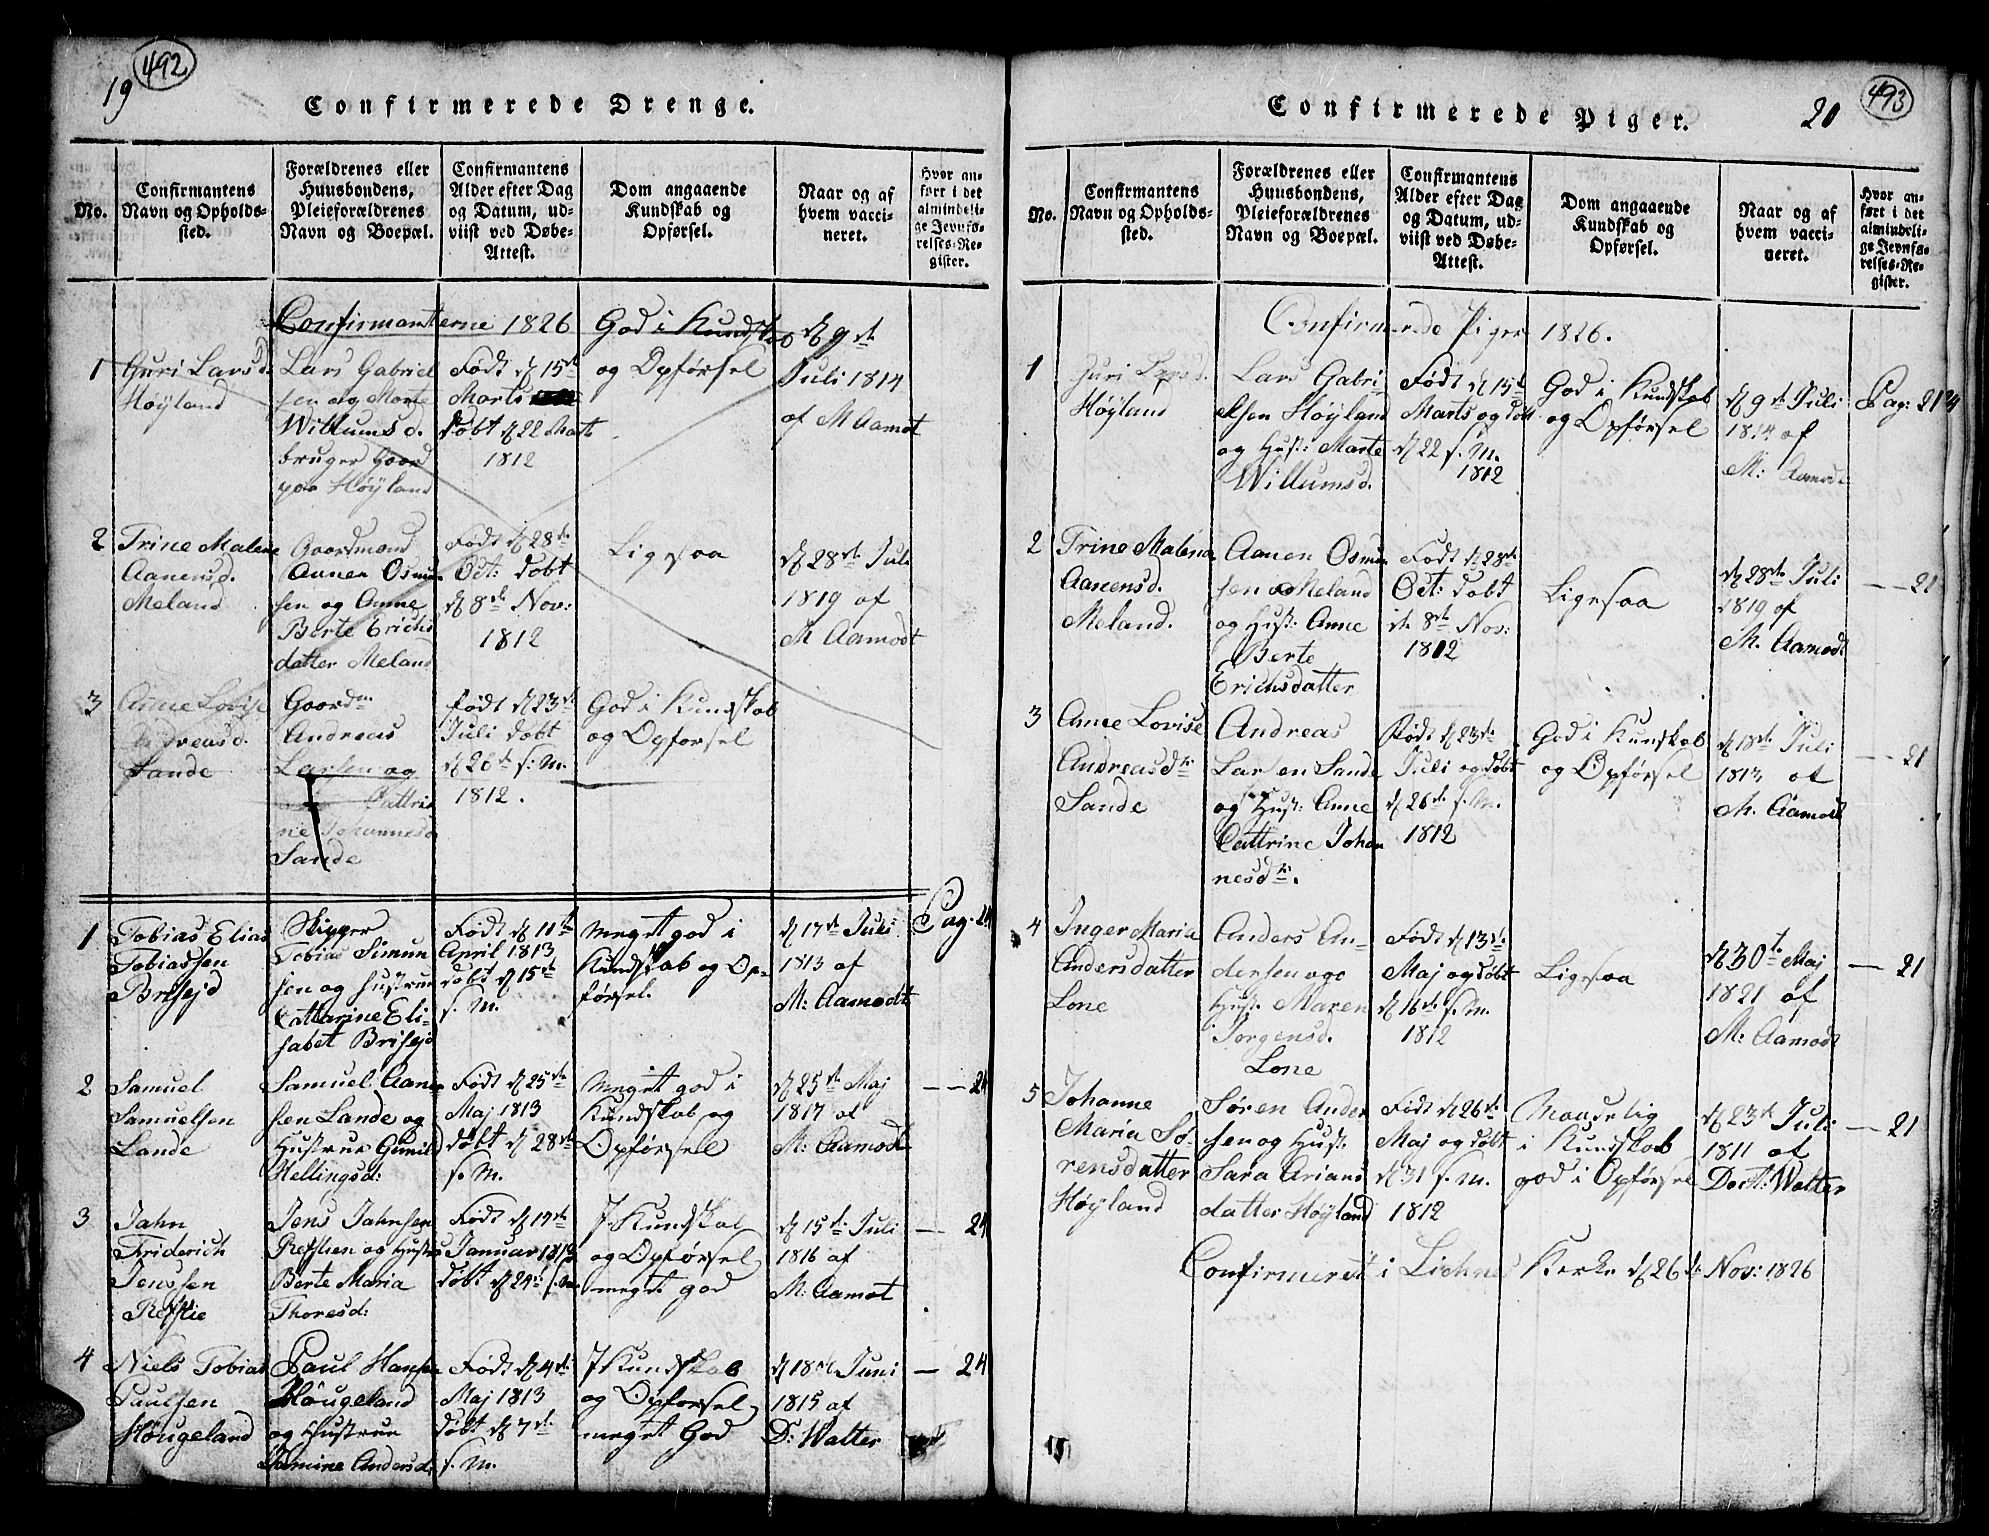 19
492
Confirmerede Drenge.
No.
Confirmantens
Navn og Opholds-
sted.
Forældrenes eller
Huusbondens,
Pleieforældrenes
Navn og Boepæl.
Confirmantens
Alder efter Dag
og Datum, ud-
viist ved Døbe-
Attest.
Dom angaaende
Kundskab og
Opførsel.
Naar og af
hvem vacci-
neret.
Hvor an-
ført i det
almindeli-
ge Jevnfø-
relses-Re-
gister.
Confirmanterne 1826
1
Guri Larsd.
Høyland
Lars Gabriel
sen og Marte
Willumsd.
bruger Gaard
paa Høyland
Født d 15de
Marts
døbt d 22 Marts
1812
God i Kundskab
og Opførsel
d 9de
Juli 1814
af M Aamot
2
Trine Malene
Aanensd.
Meland
Gaardmand
Aanen Osmun
sen og Anne
Berte Erichs
datter Meland
Født d 28de
Oct: døbt
d 8de Nov:
1812
Ligesaa
d 28de Juli
1819 af
M Aamodt
3
Anne Lovise
Andreasd.
Sande
Gaardm
Andreas
Larsen og
Cattri
ne Johannesd
Sande
Født d 23de
Juli døbt
d 26de s. M.
1812.
God i Kundskab
og Opførsel
1
Tobias Elias
Tobiassen
Brisejd
Skipper
Tobias Simun
sen og Hustrue
Cattarine Eli-
sabet Brisejd
Født d 11te
April 1813
døbt d 15de
s. M.
Meget god i
Kundskab og Op-
førsel.
d 17de Juli
1813 af
M: Aamodt
Pag. 24
2
Samuel
Samuelsen
Lande
Samuel Aanen
sen Lande og
Hustrue Gunild
Hellingsd:
Født d 25de
Maj 1813
døbt d 28de
s. M.
Meget god i
Kundskab og
Opførsel
d 25de Maj
1817 af
M: Aamodt
— — 24
3
Jahn
Friderich
Jenssen
Refslie
Jens Jahnsen
Refslien og Hustru
Berte Maria
Thoresd:
Født d 19de
Januar 1813
døbt d 24de s. M.
I Kundskab
og Opførsel
meget god
d 15de Juli
1816 af
M: Aamot
— 24
4
Niels Tobias
Paulsen
Høugeland
Paul Hansen
Høugeland
og Hustrue
Tomine Andersd:
Født d 4de
Maj 1813
døbt d 7de
s. M.
I Kundskab
og Opførsel
meget God
d 18de Juni
1815 af
D: Walter
— 24
Confirmerede Piger.
20
493
No.
Confirmantens
Navn og Opholds-
sted.
Forældrenes eller
Huusbondens,
Pleieforældrenes
Navn og Boepæl.
Confirmantens
Alder efter Dag
og Datum, ud-
viist ved Døbe-
Attest.
Dom angaaende
Kundskab og
Opførsel.
Naar og af
hvem vacci-
neret.
Hvor an-
ført i det
almindeli-
ge Jevnfø-
relses-Re-
gister.
Confirmerede Piger 1826.
1
Juri Larsd.
Høyland
Lars Gabri-
elsen Høyland
og Hust: Marte
Willumsd.
Født d 15de
Marts og døbt
d 22 s. M.
1812
God i Kundskab
og Opførsel
d 9de Juli
1814 af
M: Aamodt
Pag: 21
2
Trine Malena
Aanensd.
Meland.
Aanen Osmun
sen Meland
og Hust: Anne
Berte
Erichsdatter
Født d 28de
Oct: døbt
d. 8de Nov:
1812
Ligesaa
d 28de Juli
1819 af
M. Aamodt
— — 21
3
Anne Lovise
Andreasdtr
Sande
Andreas
Larsen Sande
og Hust: Anne
Cattrine Johan
nesdtr.
Født d 23de
Juli og døbt
d 26de s. M.
1812
God i Kunskab
og Opførsel
d 18de Juli
1813 af
M. Aamodt
— — 21
4
Inger Maria
Andersdatter
Lone
Anders An-
dersen og
Hust: Maren
Jørgensd.
Lone
Født d 13de
Maj og døbt
d 16de s. M.
1812
Ligesaa
d 30te Maj
1821 af
M: Aamodt
— 21
5
Johanne
Maria Sø-
rensdatter
Høyland
Søren Ander
sen og Hust:
Sara Arians
datter Høyland
Født d 26de
Maj og døbt
d 31 s. M.
1812
Maadelig
i Kundskab
god i Opførsel
d 23de Juli
1811 af
Doct: Walter
— 21
Confirmeret i Liehnes Kerke d 26de Nov: 1826